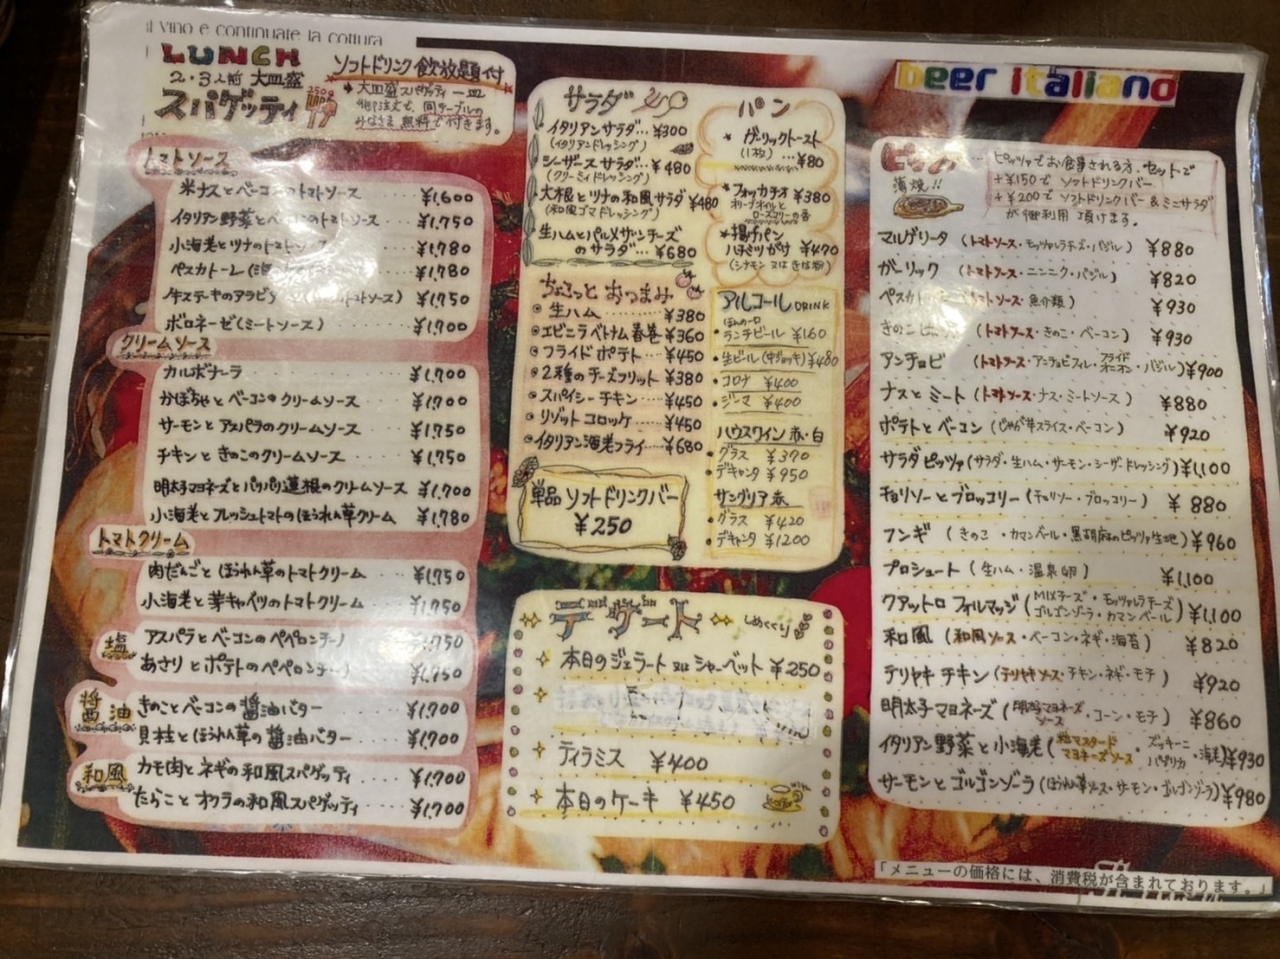 il vino e continuate la cottura
LUNCH
2・3人前 大皿盛
スパゲッティ
250g
ソフトドリンク飲放題付
大皿盛スパゲッティ一皿
御注文で、同テーブルの
みなさま 無料で付きます。
トマトソース
米ナスとベーコンのトマトソース ¥1,600
イタリアン野菜とベーコンのトマトソース ¥1,750
小海老とツナのトマトソース ¥1,780
ペスカトーレ ¥1,780
牛ステーキのアラビア トマトソース) ¥1,750
ボロネーゼ(ミートソース) ¥1,700
クリームソース
カルボナーラ ¥1,700
かぼちゃとベーコンのクリームソース ¥1,700
サーモンとアスパラのクリームソース ¥1,750
チキンときのこのクリームソース ¥1,750
明太子マヨネーズとパリパリ蓮根のクリームソース ¥1,700
小海老とフレッシュトマトのほうれん草クリーム ¥1,780
トマトクリーム
肉だんごとほうれん草のトマトクリーム ¥1,750
小海老と芽キャベツのトマトクリーム ¥1,750
塩
アスパラとベーコンのペペロンチーノ ¥1,750
あさりとポテトのペペロンチーノ ¥1,750
醤油
きのことベーコンの醤油バター ¥1,700
貝柱とほうれん草の醤油バター ¥1,700
和風
カモ肉とネギの和風スパゲッティ ¥1,700
たらことオクラの和風スパゲッティ ¥1,700
サラダ
イタリアンサラダ… ¥300
(イタリアンドレッシング)
シーザーサラダ… ¥480
(クリーミィドレッシング)
大根とツナの和風サラダ ¥480
(和風ゴマドレッシング)
生ハムとパルメザンチーズ
のサラダ… ¥680
パン
ガーリックトースト
(1枚) … ¥80
フォッカチオ ¥380
オリーブオイルと
ローズマリーの香
揚げパン
ハチミツがけ ¥470
(シナモン 又は きな粉)
ちょこっとおつまみ
生ハム ¥380
エビニラベトナム春巻 ¥360
フライドポテト ¥450
2種のチーズフリット ¥380
スパイシーチキン ¥450
リゾットコロッケ ¥450
イタリアン海老フライ ¥680
単品ソフトドリンクバー
¥250
アルコール DRINK
ほんの一口
ランチビール ¥160
生ビール(中ジョッキ) ¥480
コロナ ¥400
ジーマ ¥400
ハウスワイン 赤・白
グラス ¥370
デキャンタ ¥950
サングリア 赤
グラス ¥420
デキャンタ ¥1200
デザート しめくくり
本日のジェラート 又は シャーベット ¥250
ティラミス ¥400
本日のケーキ ¥450
beer italiano
ピッツァ
窯焼!!
ピッツァでお食事される方、セットで
+¥150で ソフトドリンクバー
+¥200で ソフトドリンクバー&ミニサラダ
が御利用頂けます。
マルゲリータ (トマトソース・モッツァレラチーズ・バジル) ¥880
ガーリック (トマトソース・ニンニク・バジル) ¥820
ペスカトーレ (トマトソース・魚介類) ¥930
きのこ (トマトソース・きのこ・ベーコン) ¥930
アンチョビ (トマトソース・アンチョビフィレ・フライドオニオン・バジル) ¥900
ナスとミート (トマトソース・ナス・ミートソース) ¥880
ポテトとベーコン (じゃが芋スライス・ベーコン) ¥920
サラダピッツァ (サラダ・生ハム・サーモン・シーザードレッシング) ¥1,100
チョリソーとブロッコリー (チョリソー・ブロッコリー) ¥880
フンギ (きのこ・カマンベール・黒胡麻のピッツァ生地) ¥960
プロシュート (生ハム・温泉卵) ¥1,100
クアットロフォルマッジ (MIXチーズ・モッツァレラチーズ ゴルゴンゾーラ・カマンベール) ¥1,100
和風 (和風ソース・ベーコン・ネギ・海苔) ¥820
テリヤキチキン (テリヤキソース・チキン・ネギ・モチ) ¥920
明太子マヨネーズ (明太子マヨネーズソース・コーン・モチ) ¥860
イタリアン野菜と小海老 (粒マスタードマヨネーズソース・ズッキーニ・パプリカ・海老) ¥930
サーモンとゴルゴンゾーラ (ほうれん草ソース・サーモン・ゴルゴンゾーラ) ¥980
「メニューの価格には、消費税が含まれております。」